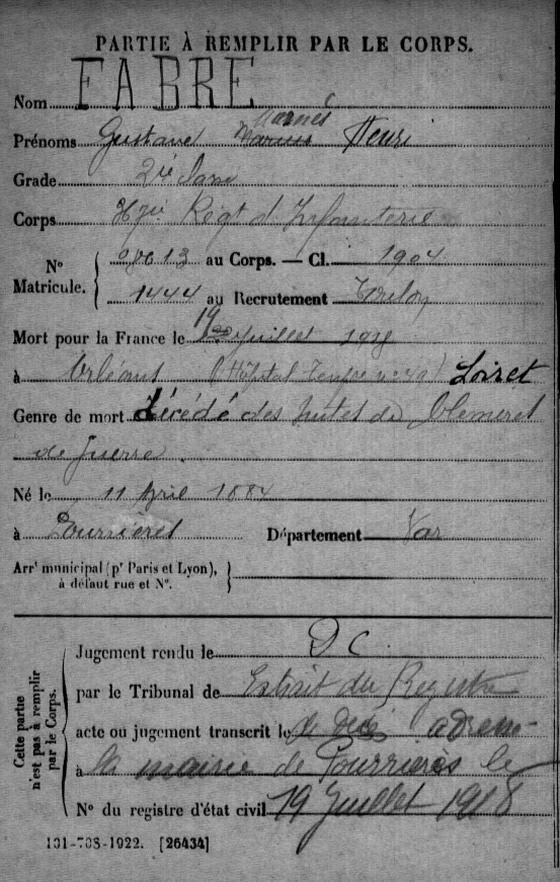 PARTIE À REMPLIR PAR LE CORPS.
Nom FABRE
Prénoms Gustave Marius Henri
Grade 2è
Corps Régt d'Infanterie
Nº Matricule. { au Corps. — Cl. 1904
1444 au Recrutement Toulon
Mort pour la France le 19 Juillet 1918
à Orléans (Hôpital Loiret
Genre de mort décédé des suites de blessures
de guerre.
Né le 11 Avril 1884
à Pourrières Département Var
Arrt municipal (pr Paris et Lyon),
à défaut rue et Nº.
Jugement rendu le D C
par le Tribunal de Extrait du Registre
acte ou jugement transcrit le de décès
à la mairie de Pourrières le
Nº du registre d'état civil 19 Juillet 1918
Cette partie
n'est pas à remplir
par le Corps.
101-708-1922. [26434]